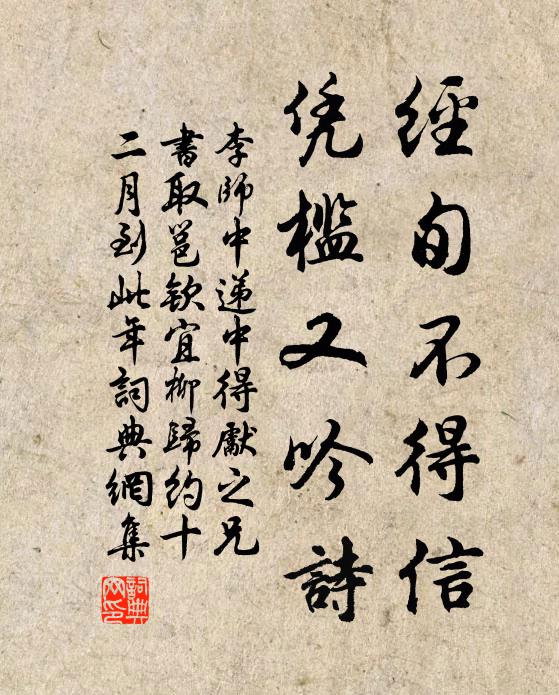 經旬不得信
凭檻又吟詩
李師中遞中得獻之兄
書取邕欽宜柳歸約十
二月到此年詞典網集
詞典網印